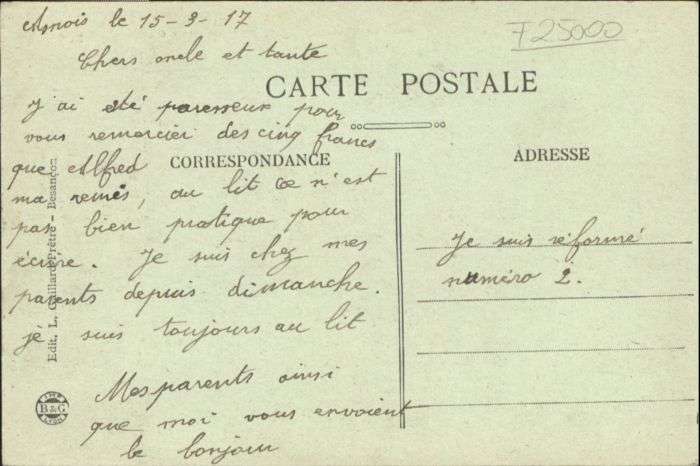 le 15-3-17
F25000
Chers oncle et tante
CARTE POSTALE
J'ai été paresseux pour
vous remercier des cinq francs
que Alfred
ma remis, au lit ce n'est
pas bien pratique pour
écrire. Je suis chez mes
parents depuis dimanche.
jé suis toujours au lit
Mes parents ainsi
que moi vous envoient
le bonjour
CORRESPONDANCE
ADRESSE
Je suis réformé
numéro 2.
Edit. L. Gaillard-Prêtre - Besançon
B&G
LYON